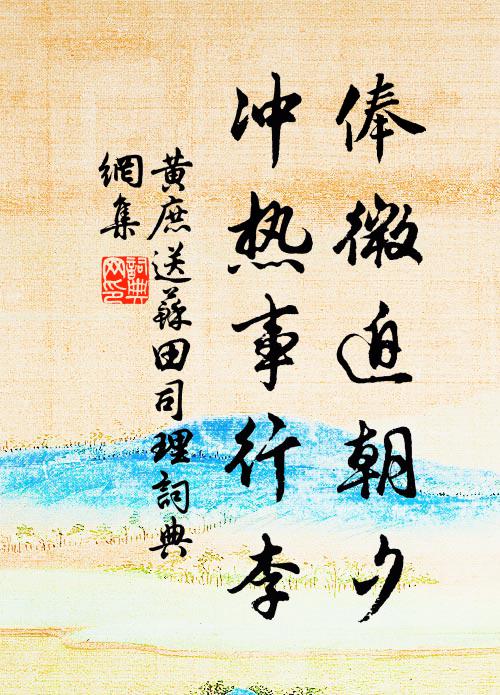 俸微迫朝夕
冲热事行李
黄庶送蘇田司理詞典
網集
詞典
网印